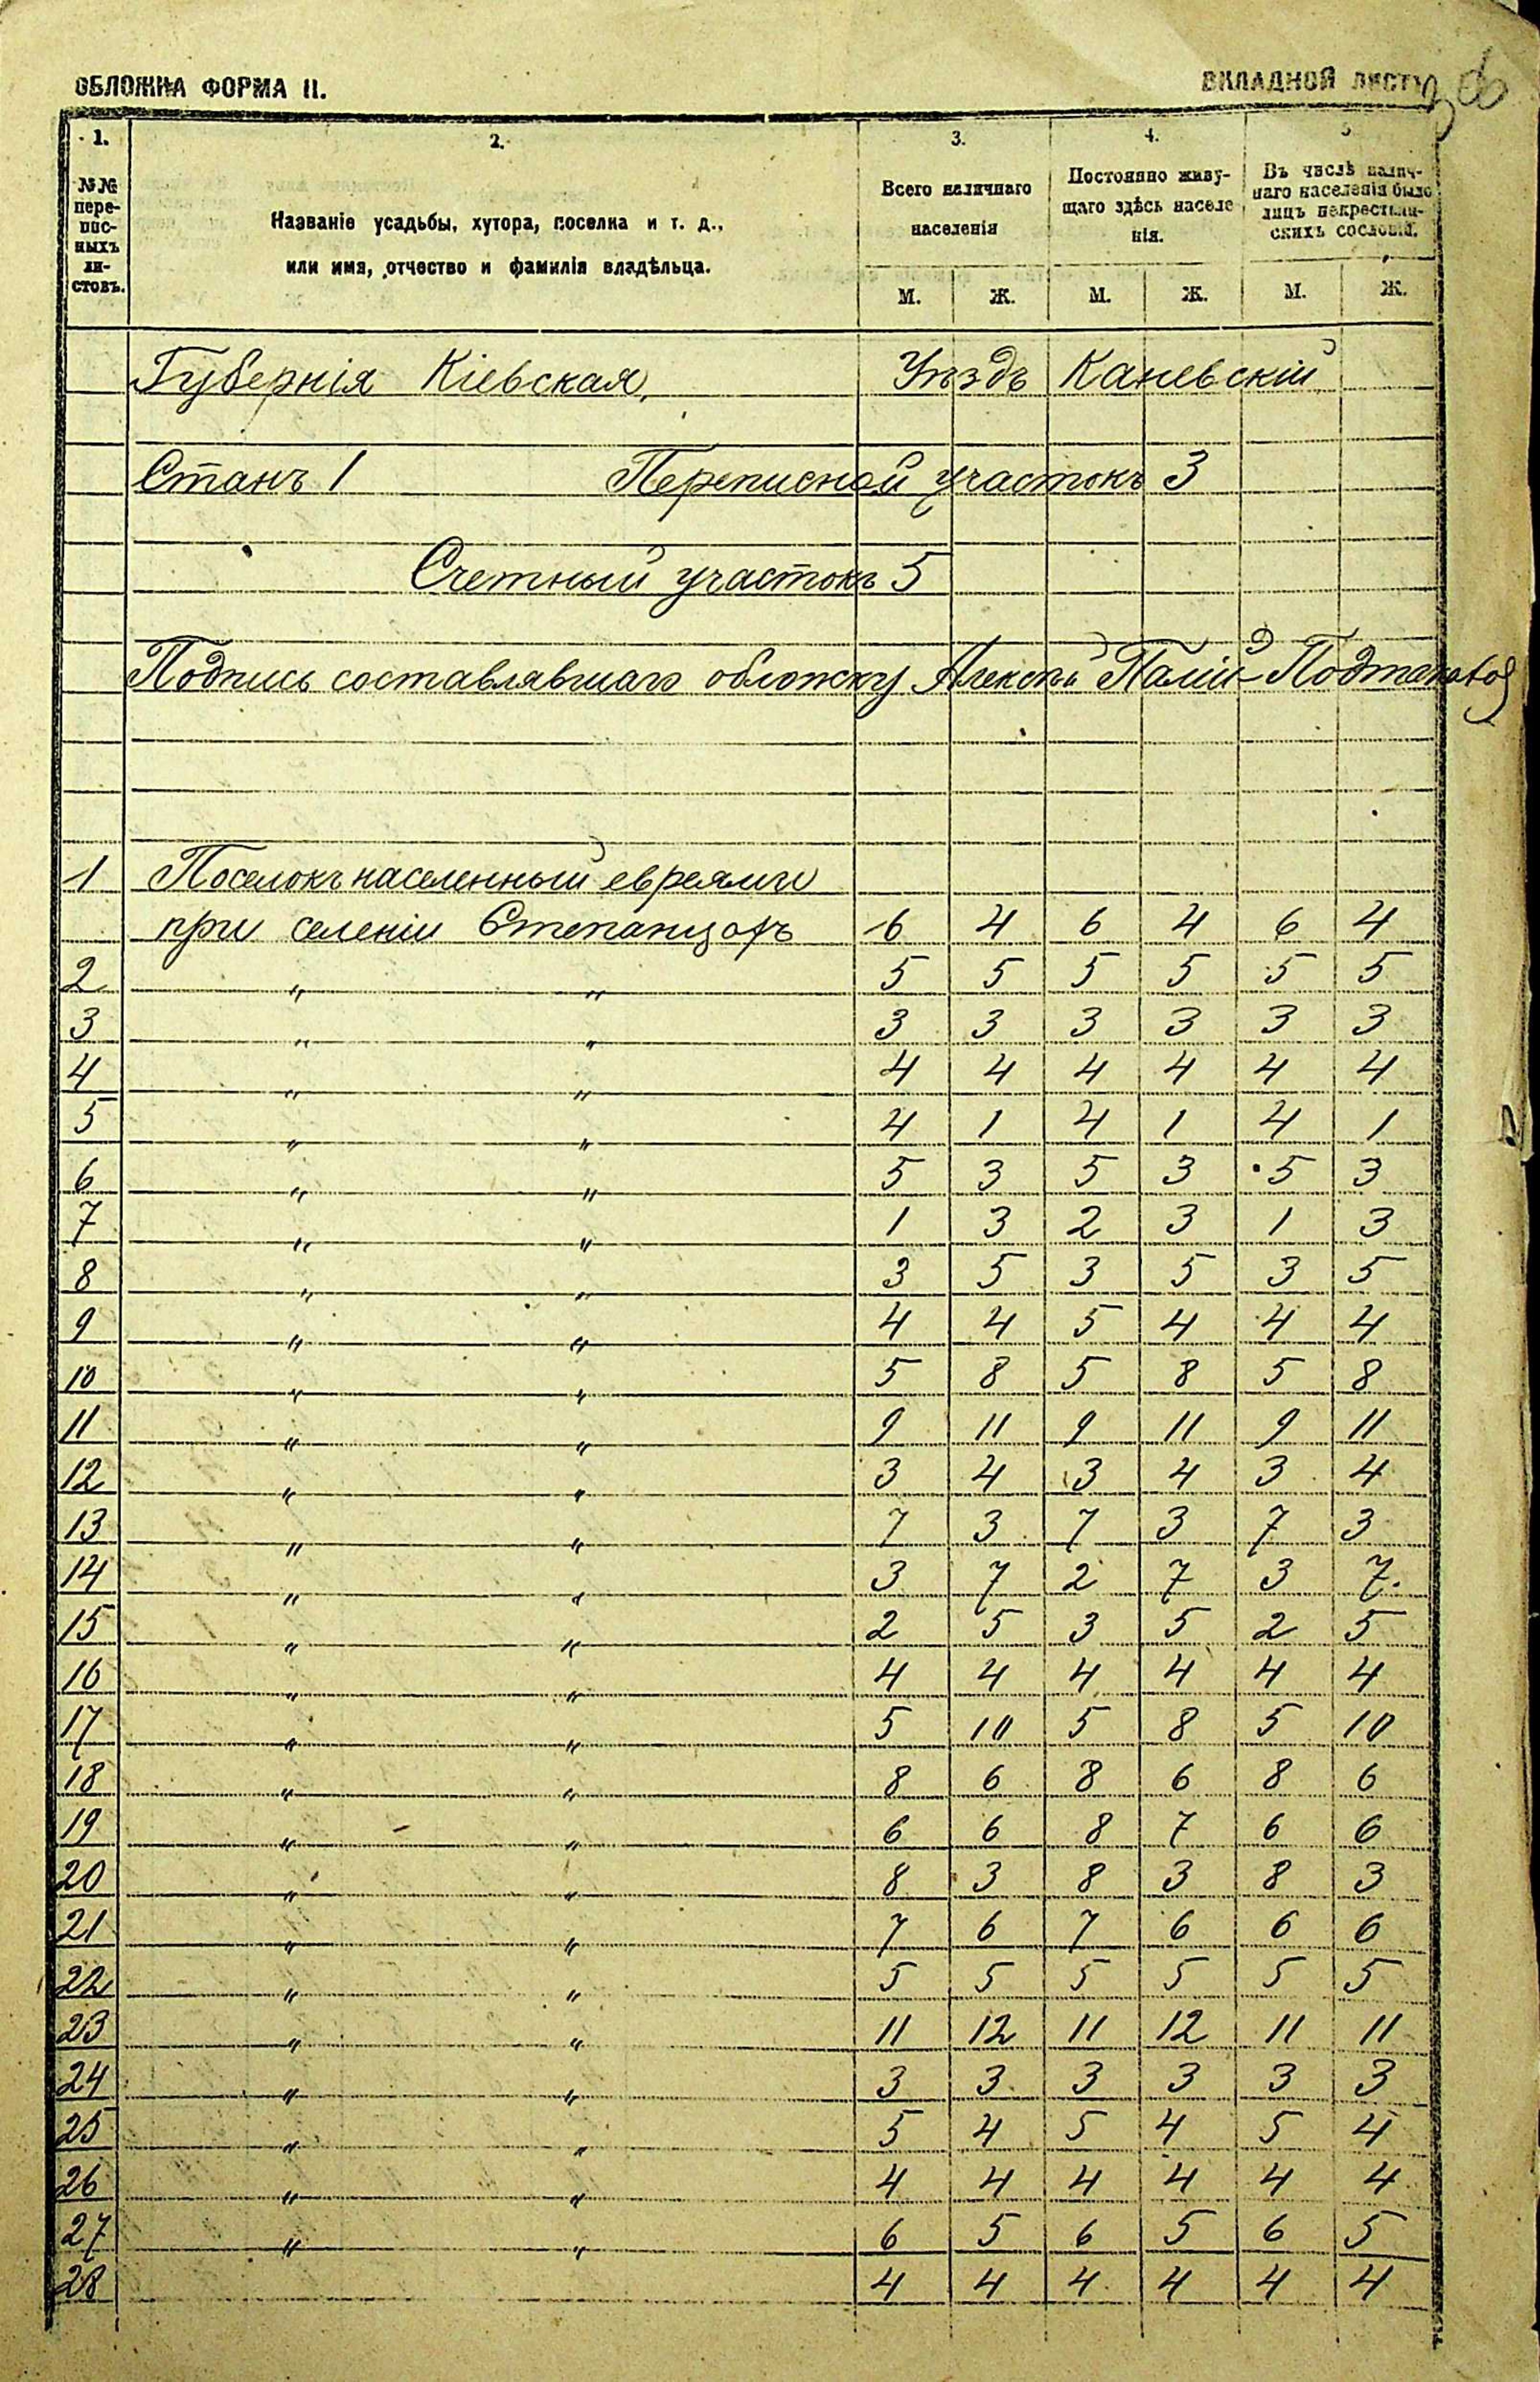 ОБЛОЖКА ФОРМА II.
ВКЛАДНОЙ ЛИСТЪ
1.
№№ пере-
пис-
ныхъ
ли-
стовъ.
2.
Названіе усадьбы, хутора, поселка и т. д.,
или имя, отчество и фамилія владѣльца.
3.
Всего наличнаго
населенія
М. Ж.
4.
Постоянно живу-
щаго здѣсь населе
нія.
М. Ж.
5
Въ числѣ налич-
наго населенія было
лицъ некрестьян-
скихъ сословій.
М. Ж.
Губернія Кіевская, Уѣздъ Каневскій
Станъ 1 Переписной участокъ 3
Счетный участокъ 5
Подпись составлявшаго обложку Алексѣй Палій-
1 Поселокъ населенный евреями
при селеніи Степанцахъ 6 4 6 4 6 4
2 " " 5 5 5 5 5 5
3 " " 3 3 3 3 3 3
4 " " 4 4 4 4 4 4
5 " " 4 1 4 1 4 1
6 " " 5 3 5 3 5 3
7 " " 1 3 2 3 1 3
8 " " 3 5 3 5 3 5
9 " " 4 4 5 4 4 4
10 " " 5 8 5 8 5 8
11 " " 9 11 9 11 9 11
12 " " 3 4 3 4 3 4
13 " " 7 3 7 3 7 3
14 " " 3 7 2 7 3 7.
15 " " 2 5 3 5 2 5
16 " " 4 4 4 4 4 4
17 " " 5 10 5 8 5 10
18 " " 8 6 8 6 8 6
19 " " 6 6 8 7 6 6
20 " " 8 3 8 3 8 3
21 " " 7 6 7 6 6 6
22 " " 5 5 5 5 5 5
23 " " 11 12 11 12 11 11
24 " " 3 3 3 3 3 3
25 " " 5 4 5 4 5 4
26 " " 4 4 4 4 4 4
27 " " 6 5 6 5 6 5
28 4 4 4 4 4 4